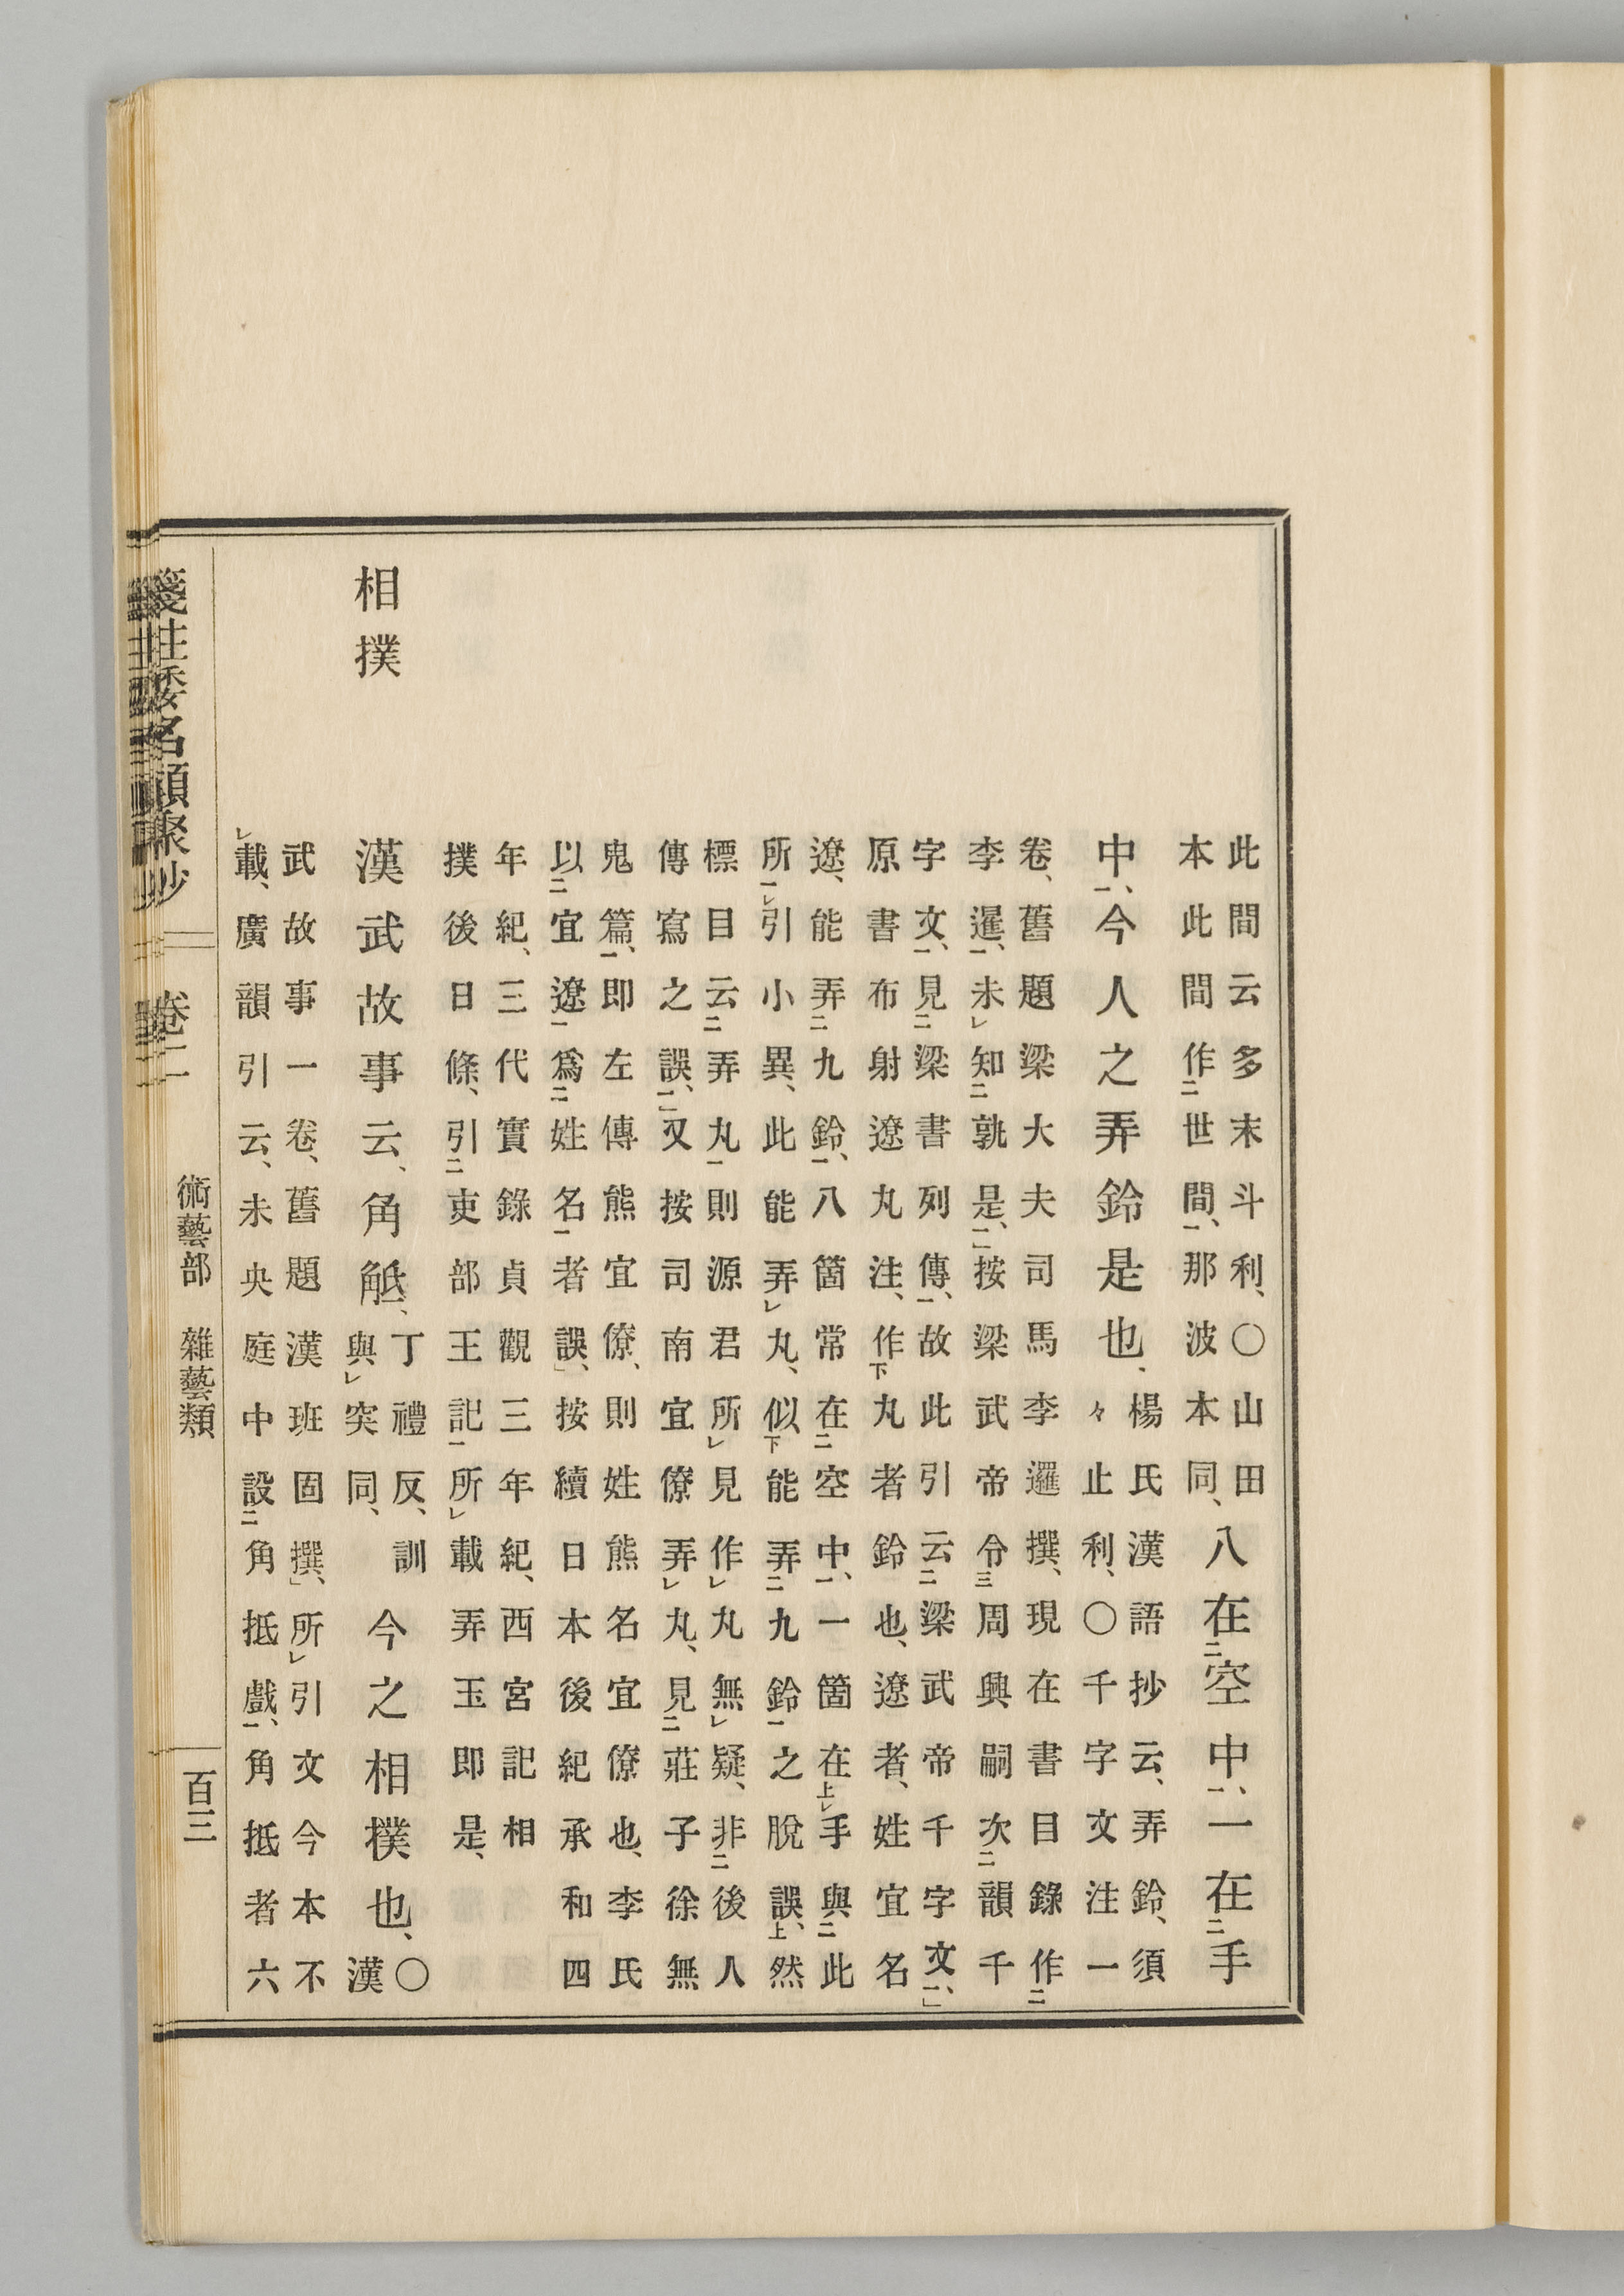 此間云多末斗利、〇山田
本此間作世間、那波本同、
八在空中、一在手
中、今人之弄鈴是也、
楊氏漢語抄云、弄鈴、須
々止利、〇千字文注一
卷、舊題梁大夫司馬李邏撰、現在書目錄作
李暹、未知孰是、按梁武帝令周興嗣次韻千
字文、見梁書列傳、故此引云梁武帝千字文、
原書布射遼丸注、作丸者鈴也、遼者、姓宜名
遼、能弄九鈴、八箇常在空中、一箇在手與此
所引小異、此能弄丸、似能弄九鈴之脫誤、然
標目云弄丸則源君所見作丸無疑、非後人
傳寫之誤、又按司南宜僚弄丸、見莊子徐無
鬼篇、即左傳熊宜僚、則姓熊名宜僚也、李氏
以宜遼爲姓名者誤、按續日本後紀承和四
年紀、三代實錄貞觀三年紀、西宮記相
撲後日條、引吏部王記所載弄玉即是、
相撲
漢武故事云、角觝、
丁禮反、訓
與突同、
今之相撲也、
〇
漢
武故事一卷、舊題漢班固撰、所引文今本不
載、廣韻引云、未央庭中設角抵戲、角抵者六
箋注倭名類聚抄 卷二 術藝部 雜藝類 百三